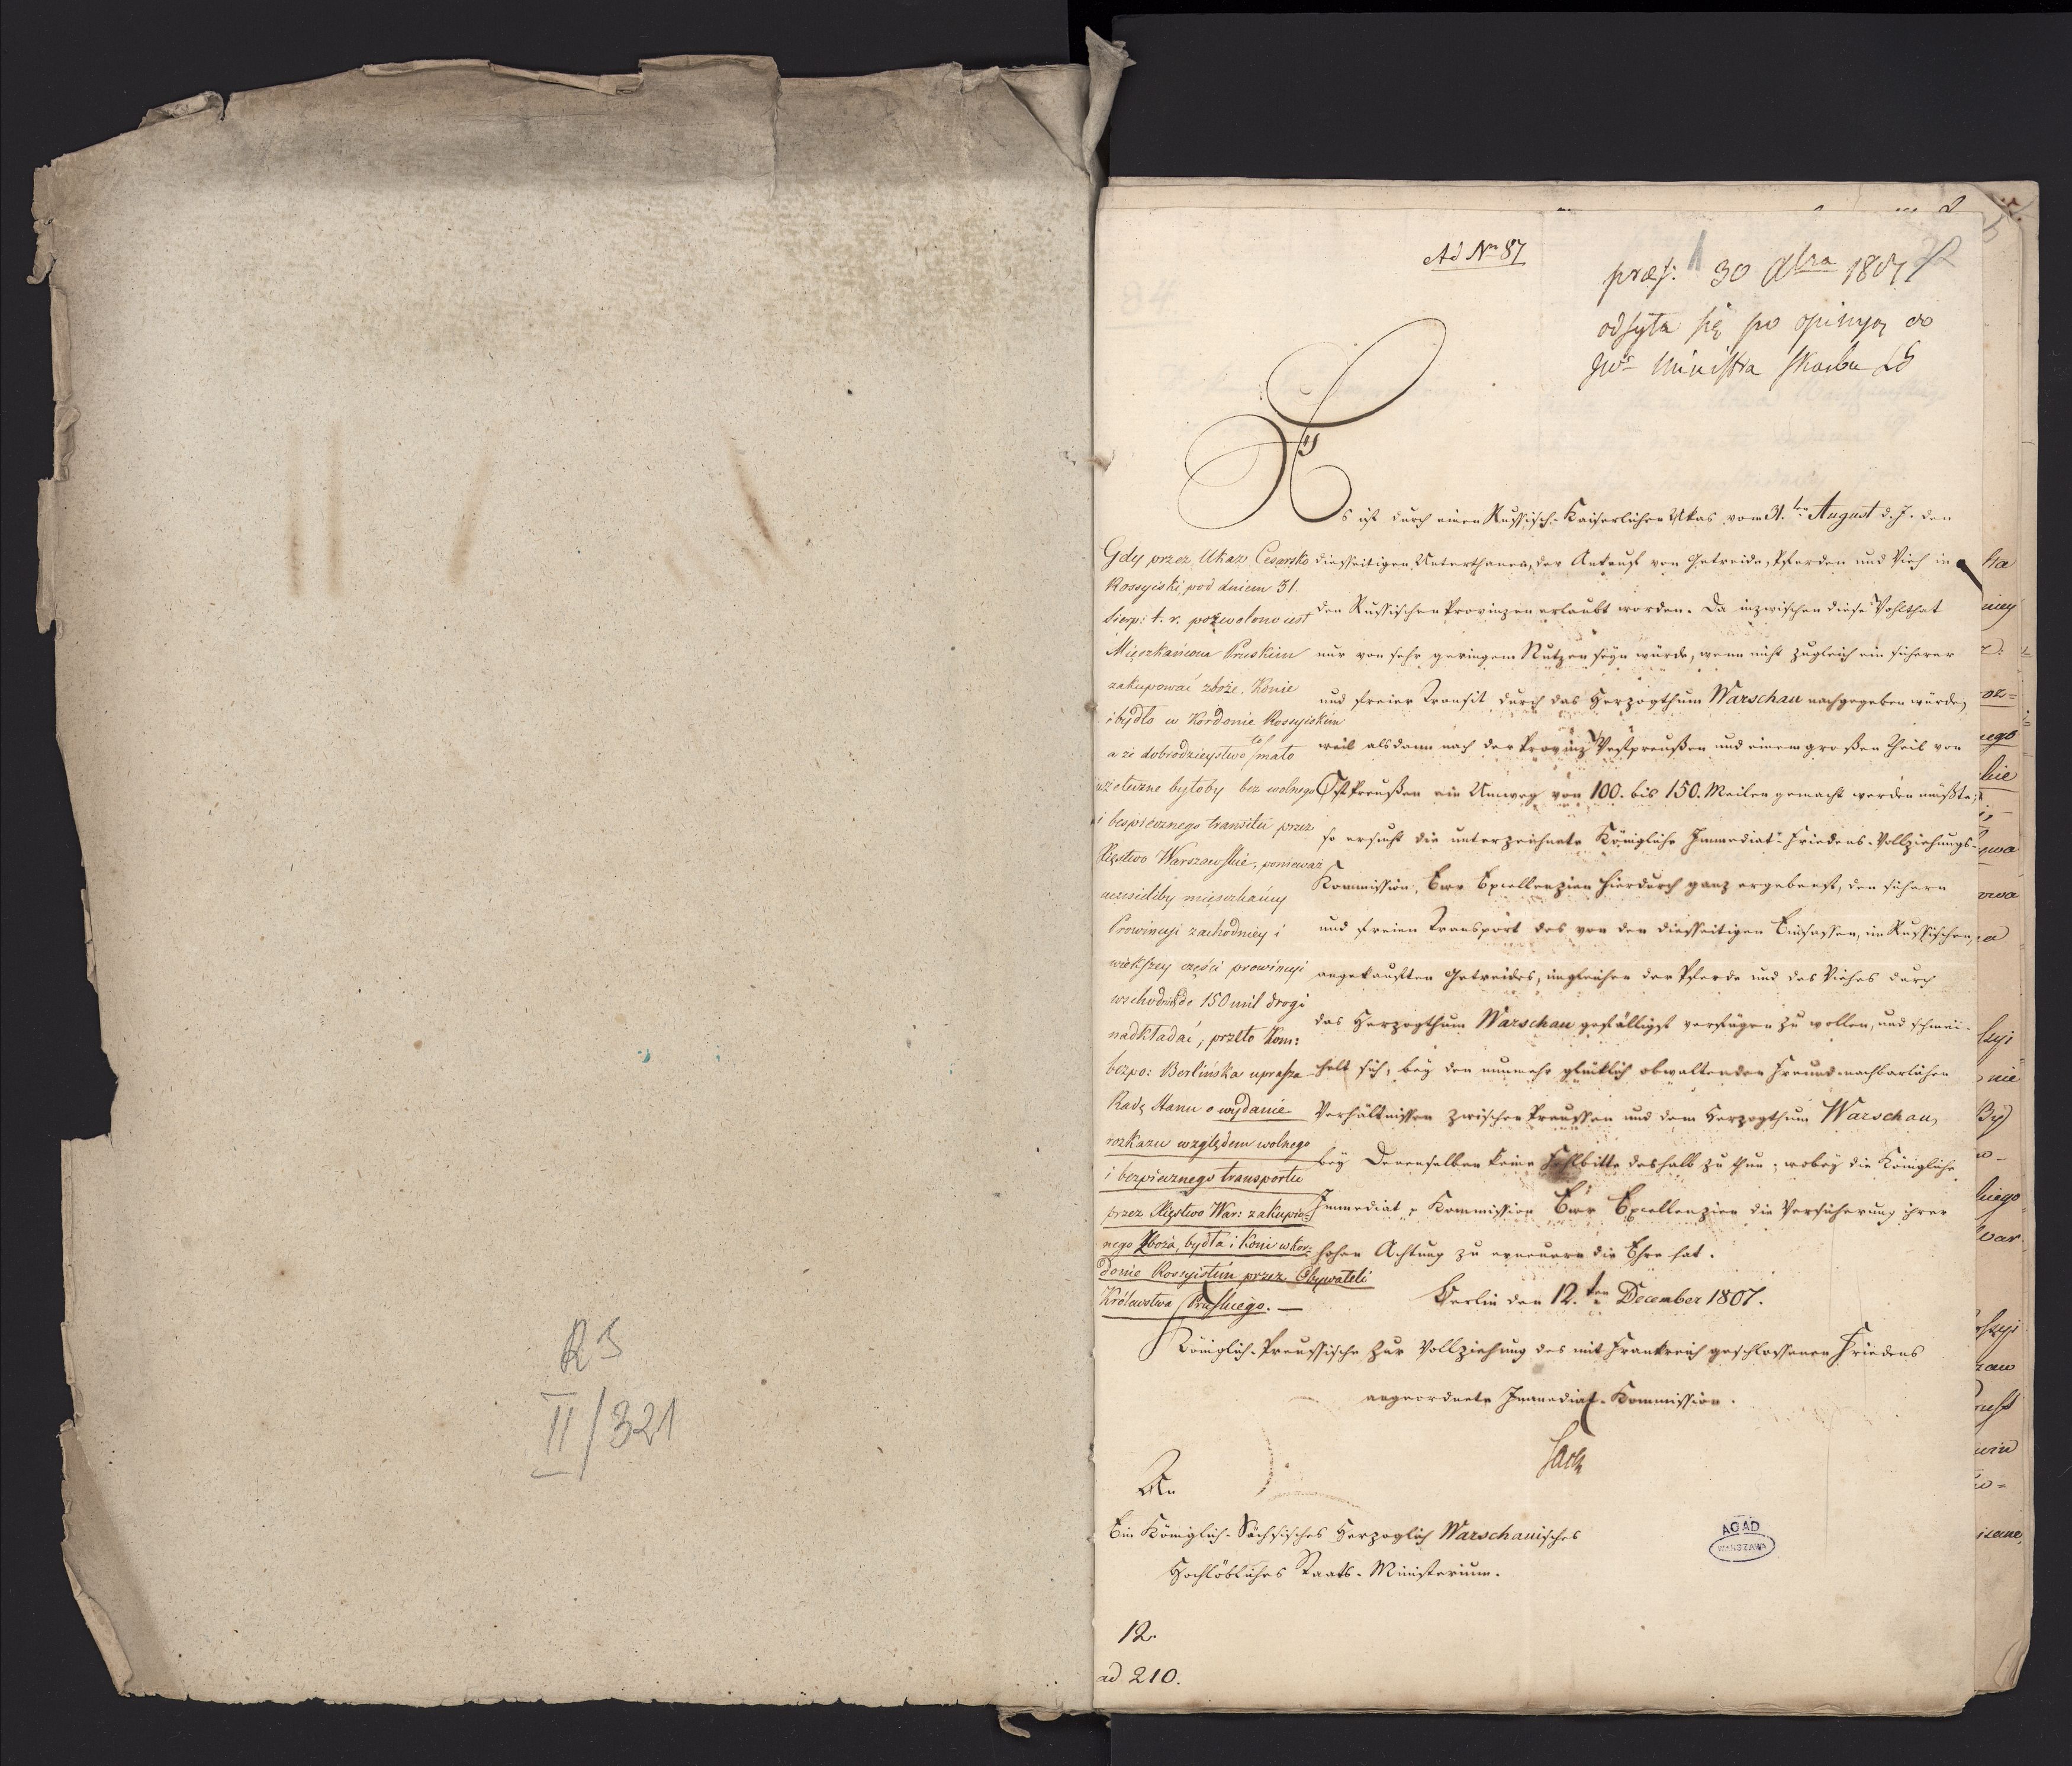 R S
II/321
Ad Nro 87
præs: 30 Xbra 1807
odsyła się po opinyą do
JWo Ministra Skarbu
Es ist durch einen Russisch-Kaiserlichen Ukas vom 31.ten August d. J. den
diesseitigen Unterthanen, der Ankauf von Getreide, Pferden und Vieh in
den Russischen Provinzen erlaubt worden. Da inzwischen diese Wohlthat
nur von sehr geringem Nutzen seyn würde, wenn nicht zugleich ein sicherer
und freier Transit durch das Herzogthum Warschau nachgegeben würde,
weil alsdann nach der Provinz Westpreußen und einem großen Theil von
OstPreußen ein Umweg von 100. bis 150. Meilen gemacht werden müßte;
so ersucht die unterzeichnete Königliche Immediat-Friedens-Vollziehungs-
Kommission, Ewr Excellenzien hierdurch ganz ergebenst, den sichern
und freien Transport des von den diesseitigen Einsassen, im Russischen
angekauften Getreides, imgleichen der Pferde und des Viehes durch
das Herzogthum Warschau gefälligst verfügen zu wollen, und schmei-
chelt sich, bey den nunmehr glücklich obwaltenden Freundnachbarlichen
Verhältnissen zwischen Preussen und dem Herzogthum Warschau,
bey Denenselben keine Fehlbitte deshalb zu thun; wobey die Königliche
Immediat Kommission Ewr Excellenzien die Versicherung ihrer
hohen Achtung zu erneuern die Ehre hat.
Berlin den 12.ten December 1807.
Königlich-Preussische zur Vollziehung des mit Frankreich geschlossenen Friedens
angeordnete Immediat-Kommission.
Sack
Gdy przez Ukaz Cesarsko
Rossyiski, pod dniem 31.
Sierp: t. r. pozwolono iest
Mieszkańcom Pruskim
zakupować zboże, Konie
i bydło w Kordonie Rossyiskim
a że dobrodzieystwo to mało
użyteczne byłoby bez wolnego
i bespiecznego transitu przez
Xięstwo Warszawskie, ponieważ
musieliby mieszkańcy
Prowincyi zachodniey i
większey części prowincyi
wschodniéy do 150 mil drogi
nadkładać, przeto Kom:
bezpo: Berlińska uprasza
Radę Stanu o wydanie
rozkazu względem wolnego
i bezpiecznego transportu
przez Xięstwo War: zakupio-
nego Zboża, bydła i koni w Kor-
donie Rossyiskim przez Obywateli
Królewstwa Pruskiego. —
An
Ein Königlich-Sächsisches Herzoglich Warschauisches
Hochlöbliches Staats-Ministerium.
AGAD
WARSZAWA
12.
ad 210.